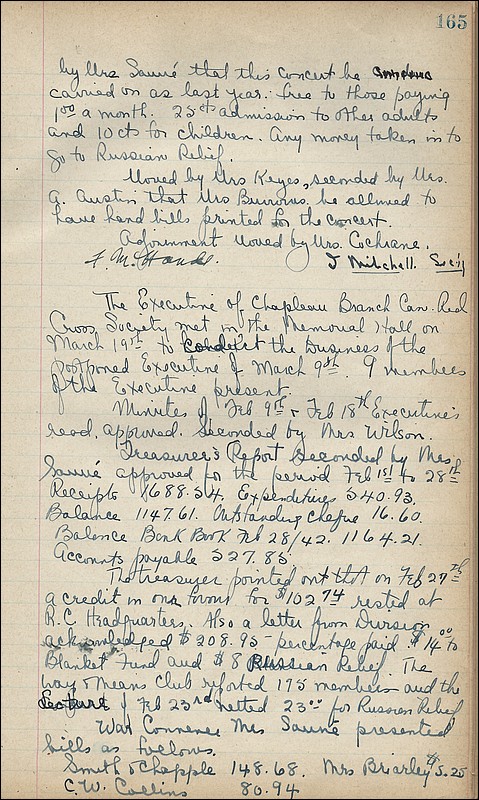 165
by Mrs Sauvé that this concert be
carried on as last year. free to those paying
1⁰⁰ a month. 25cts admission to other adults
and 10 cts for children. Any money taken in to
go to Russian Relief.
Moved by Mrs Keyes, seconded by Mrs.
G. Austin that Mrs Burrows be allowed to
have hand bills printed for the concert.
Adjournment moved by Mrs. Cochrane.
J Mitchell. Sec'y
The Executive of Chapleau Branch Can. Red
Cross Society met in the Memorial Hall on
March 19th to conduct the business of the
postponed Executive of March 9th. 9 members
of the Executive present.
Minutes of Feb 9th & Feb 18th Executive's
read, approved. Seconded by Mrs Wilson.
Treasurer's Report seconded by Mrs
Sauvé approved for the period Feb 1st to 28th
Receipts 1688.54. Expenditures 540.93.
Balance 1147.61. Outstanding cheque 16.60.
Balance Bank Book Feb 28/42. 1164.21.
Accounts payable 527.85.
The treasurer pointed out that on Feb 27th
a credit in our favour for $102 74 rested at
R.C Headquarters. Also a letter from Division
acknowledged $208.95 percentage paid. $14⁰⁰ to
Blanket Fund and $8 Russian Relief. The
Way & Means Club reported 175 members and the
Lecture of Feb 23rd netted 23⁰⁰ for Russian Relief
War Convener Mrs Sauvé presented
bills as follows.
Smith & Chapple 148.68. Mrs Briarley $5.25
C.W. Collins 80.94